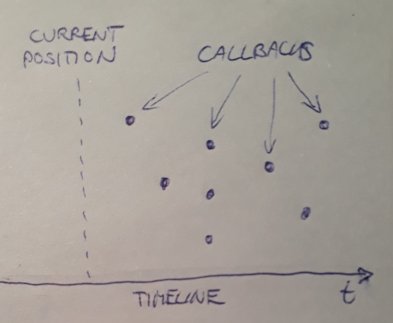 CURRENT
POSITION
CALLBACKS
TIMELINE
t